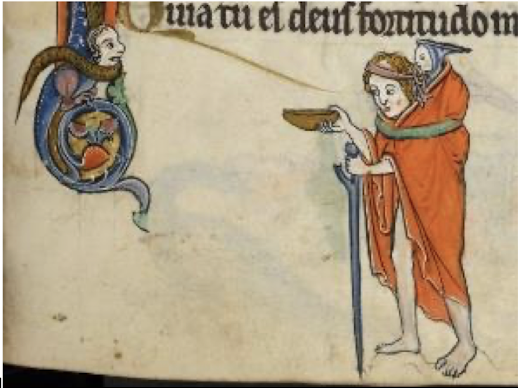 Quia tu es deus fortitudo m